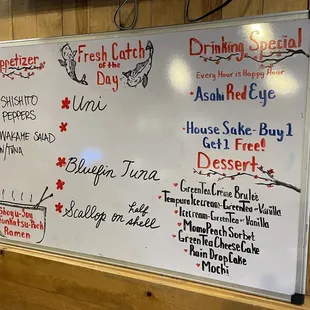 Appetizer
SHISHITO
PEPPERS
WAKAME SALAD
W/TUNA
Shoyu-Soy
Tonkatsu-Pork
Ramen
Fresh Catch
of the
Day
Uni
Bluefin Tuna
Scallop on half
shell
Drinking Special
Every Hour is Happy Hour
Asahi Red Eye
House Sake-Buy 1
Get 1 Free!
Dessert
Green Tea Creme Brulee
Tempura Icecream-GreenTea-Vanilla
Icecream-GreenTea-Vanilla
Momo Peach Sorbet
Green Tea Cheese Cake
Rain Drop Cake
Mochi